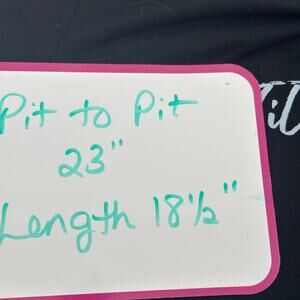 Pit to Pit
23"
Length 18½"